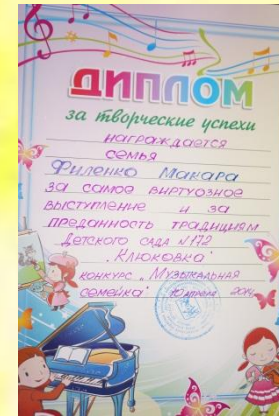 ДИПЛОМ
за творческие успехи
награждается
семья
Филенко Макара
за самое виртуозное
выступление и за
преданность традициям
Детского сада №172
"Клюковка"
конкурс "Музыкальная
семейка" 10 апреля 2014